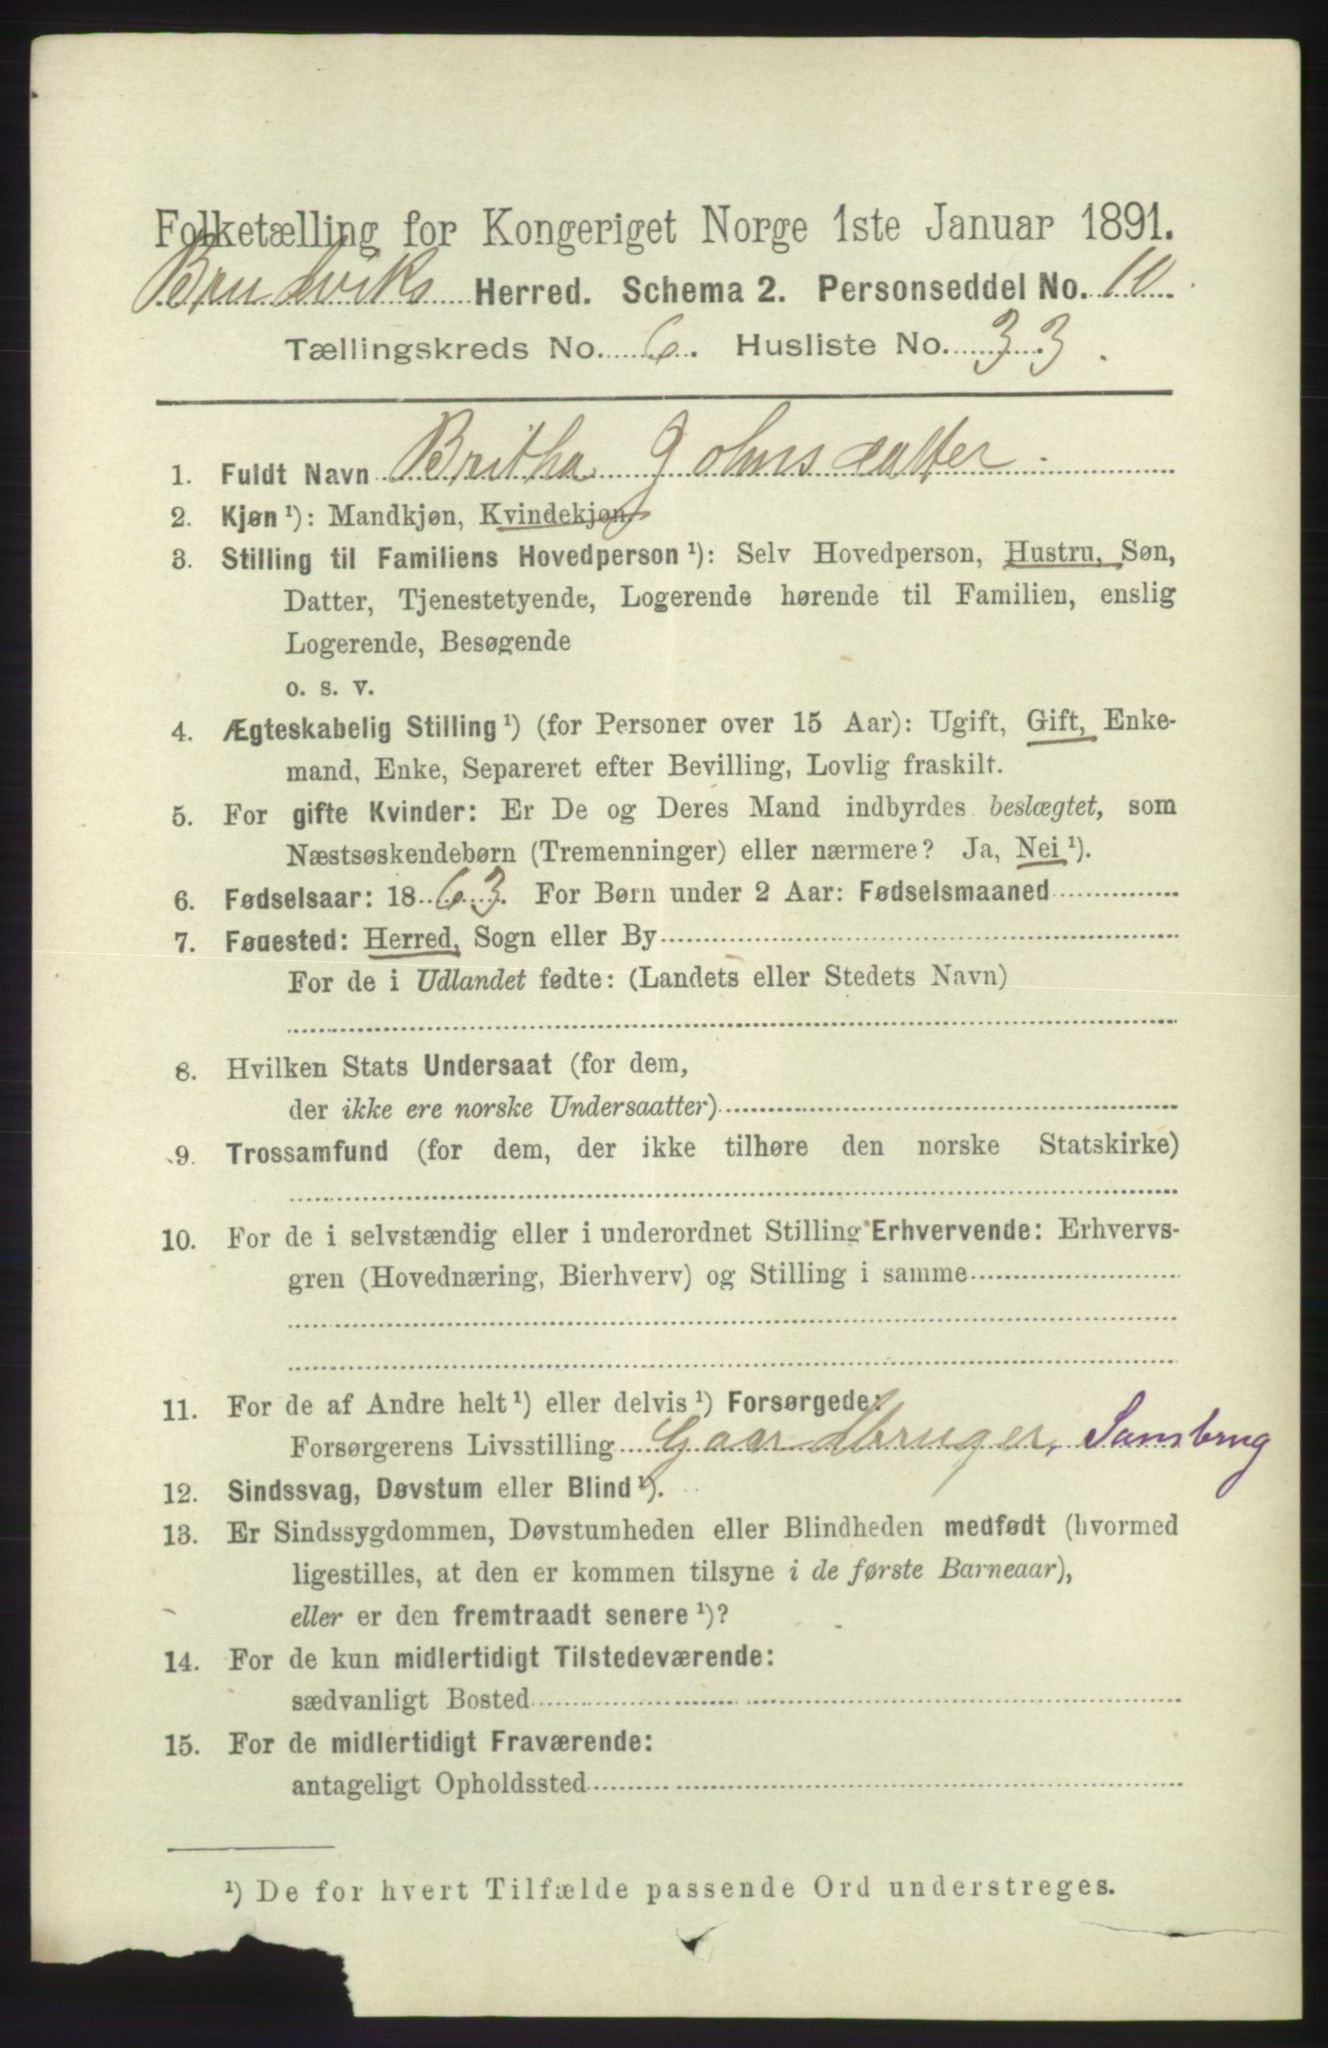 Folketælling for Kongeriget Norge 1ste Januar 1891.
Bruviks Herred. Schema 2. Personseddel No. 10.
Tællingskreds No. 6. Husliste No. 33.
1. Fuldt Navn Britha Johnsdatter
2. Kjøn ¹): Mandkjøn, Kvindekjøn
3. Stilling til Familiens Hovedperson ¹): Selv Hovedperson, Hustru, Søn,
Datter, Tjenestetyende, Logerende hørende til Familien, enslig
Logerende, Besøgende
o. s. v.
4. Ægteskabelig Stilling ¹) (for Personer over 15 Aar): Ugift, Gift, Enke-
mand, Enke, Separeret efter Bevilling, Lovlig fraskilt.
5. For gifte Kvinder: Er De og Deres Mand indbyrdes beslægtet, som
Næstsøskendebørn (Tremenninger) eller nærmere? Ja, Nei ¹).
6. Fødselsaar: 1863. For Børn under 2 Aar: Fødselsmaaned
7. Fødested: Herred, Sogn eller By
For de i Udlandet fødte: (Landets eller Stedets Navn)
8. Hvilken Stats Undersaat (for dem,
der ikke ere norske Undersaatter)
9. Trossamfund (for dem, der ikke tilhøre den norske Statskirke)
10. For de i selvstændig eller i underordnet Stilling Erhvervende: Erhvervs-
gren (Hovednæring, Bierhverv) og Stilling i samme
11. For de af Andre helt ¹) eller delvis ¹) Forsørgede:
Forsørgerens Livsstilling Gaardbruger, Sambrug
12. Sindssvag, Døvstum eller Blind ¹).
13. Er Sindssygdommen, Døvstumheden eller Blindheden medfødt (hvormed
ligestilles, at den er kommen tilsyne i de første Barneaar),
eller er den fremtraadt senere ¹)?
14. For de kun midlertidigt Tilstedeværende:
sædvanligt Bosted
15. For de midlertidigt Fraværende:
antageligt Opholdssted
¹) De for hvert Tilfælde passende Ord understreges.